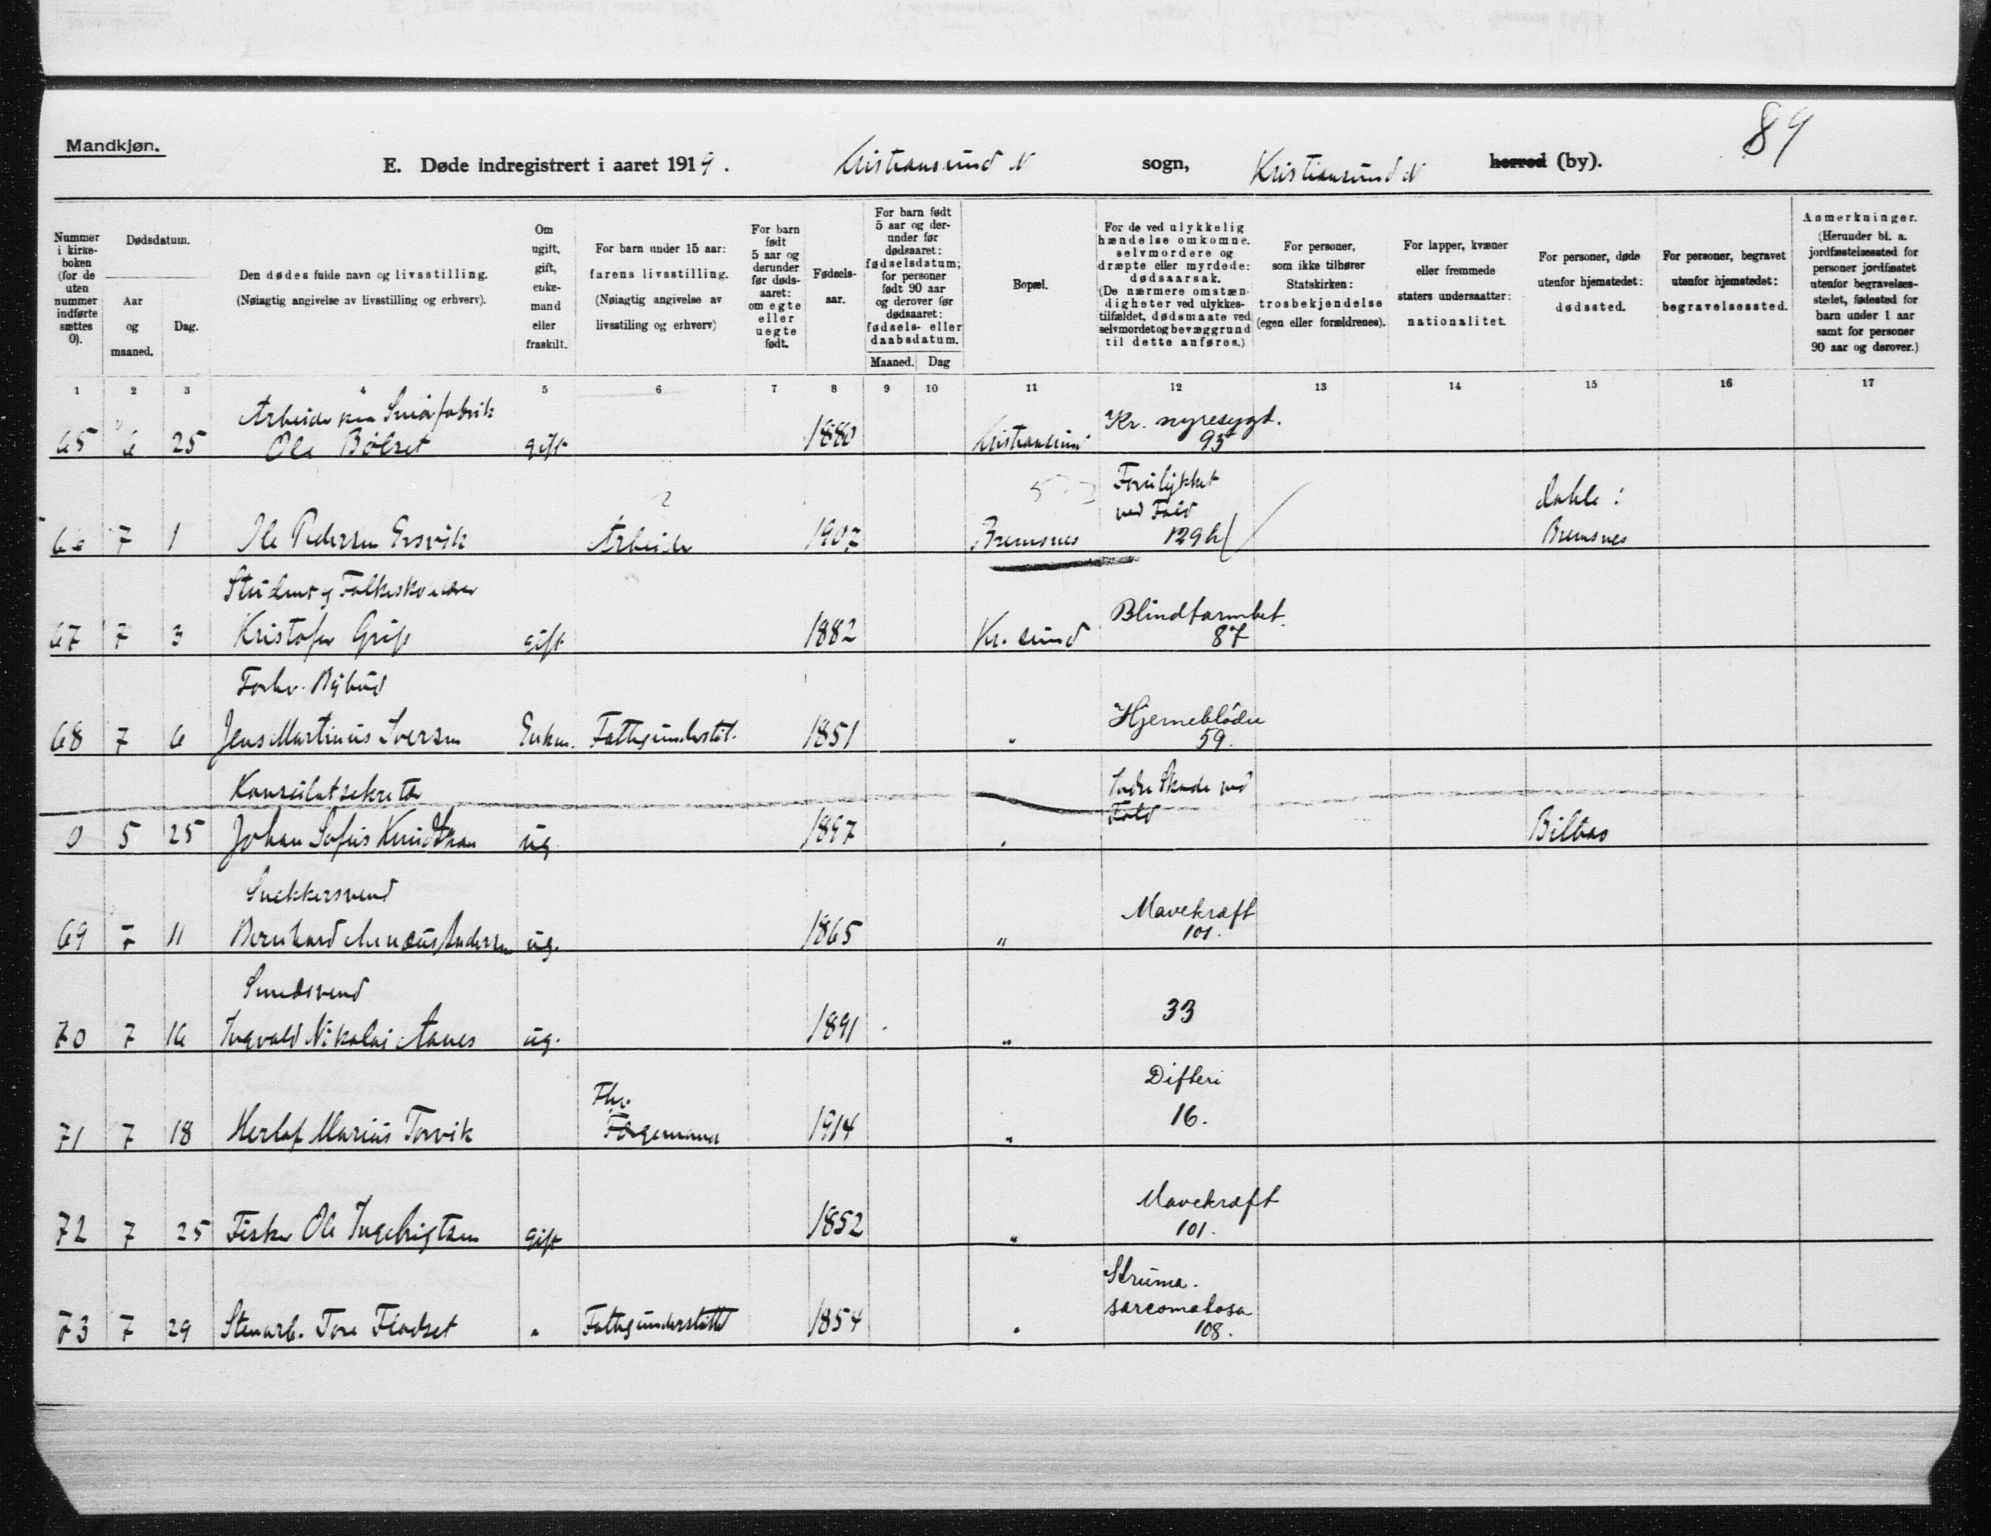 89
Mandkjøn.
E. Døde indregistrert i aaret 1919. Kristiansund N sogn, Kristiansund N herred (by).
Nummer i kirkeboken (for de uten nummer indførte sættes 0).
Dødsdatum.
Aar og maaned.
Dag.
Den dødes fulde navn og livsstilling.
(Nøiagtig angivelse av livsstilling og erhverv).
Om ugift, gift, enkemand eller fraskilt.
For barn under 15 aar: farens livsstilling.
(Nøiagtig angivelse av livsstiling og erhverv)
For barn født 5 aar og derunder før dødsaaret: om egte eller uegte født.
Fødselsaar.
For barn født 5 aar og derunder før dødsaaret: fødselsdatum; for personer født 90 aar og derover før dødsaaret: fødsels- eller daabsdatum.
Maaned. Dag
Bopæl.
For de ved ulykkelig hændelse omkomne, selvmordere og dræpte eller myrdede: dødsaarsak.
(De nærmere omstændigheter ved ulykkestilfældet, dødsmaate ved selvmordet og bevæggrund til dette anføres.)
For personer, som ikke tilhører Statskirken: trosbekjendelse (egen eller forældrenes).
For lapper, kvæner eller fremmede staters undersaatter: nationalitet.
For personer, døde utenfor hjemstedet: dødssted.
For personer, begravet utenfor hjemstedet: begravelsessted.
Anmerkninger.
(Herunder bl. a. jordfæstelsessted for personer jordfæstet utenfor begravelsesstedet, fødested for barn under 1 aar samt for personer 90 aar og derover.)
1 2 3 4 5 6 7 8 9 10 11 12 13 14 15 16 17
Kr. nyresygd.
65 6 25 Ole Bolset gift 1880 Kristiansund 93
Forulykket
ved Fald
66 7 1 Ole Pedersen Ersvik Arbeider 1907 Bremsnes 129 b Dahle: Bremsnes
Student og Folkeskolelærer
Blindtarmbet.
67 7 3 Kristofer Grip gift 1882 Kr. sund 87
Forhv. Bybud
Hjerneblødn
68 7 6 Jens Martinus Iversen Enkem. Fattigunderstøt. 1851 " 59.
Konsulatsekretær
Indre Skade ved
Fald
0 5 25 Johan Sofus Knudtzon ug 1897 " Bilbao
Snekkersvend
Mavekræft
69 7 11 Bernhard Andersen ug. 1865 " 101.
Smedsvend
70 7 16 Ingvald Nikolai Aanes ug. 1891 " 33
Difteri
71 7 18 Herlof Marius Torvik Fhv. 1914 " 16.
Mavekræft
72 7 25 Fisker Ole Ingebrigtsen gift 1852 " 101.
Struma
sarcomatosa
73 7 29 Stenarb. Tore Flodset " Fattigunderstøttet 1854 " 108.